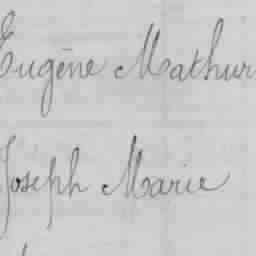 Eugène Mathur
Joseph Marie